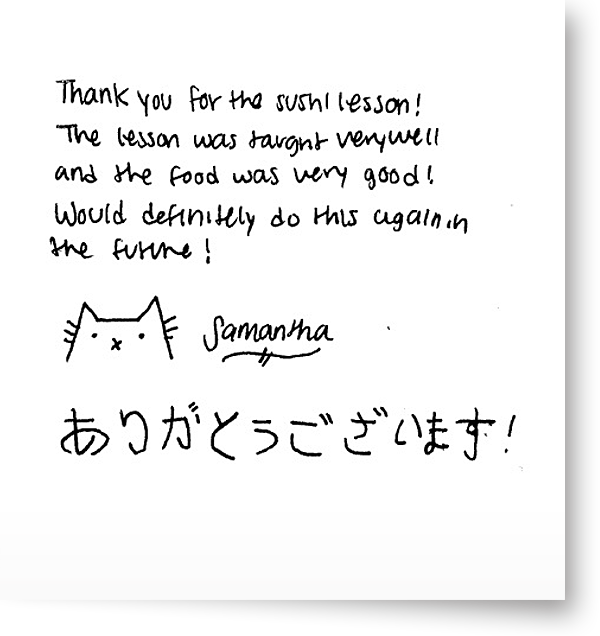 Thank you for the sushi lesson!
The lesson was taught very well
and the food was very good!
Would definitely do this again in
the future!
Samantha
ありがとうございます!